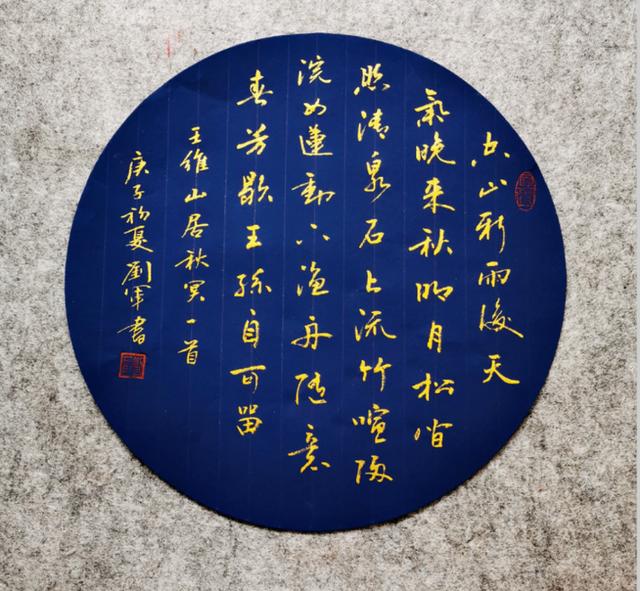 空山新雨後天
氣晚来秋明月松間
照清泉石上流竹喧歸
浣女蓮動下漁舟隨意
春芳歇王孫自可留
王維山居秋冥一首
庚子初夏劉軍書